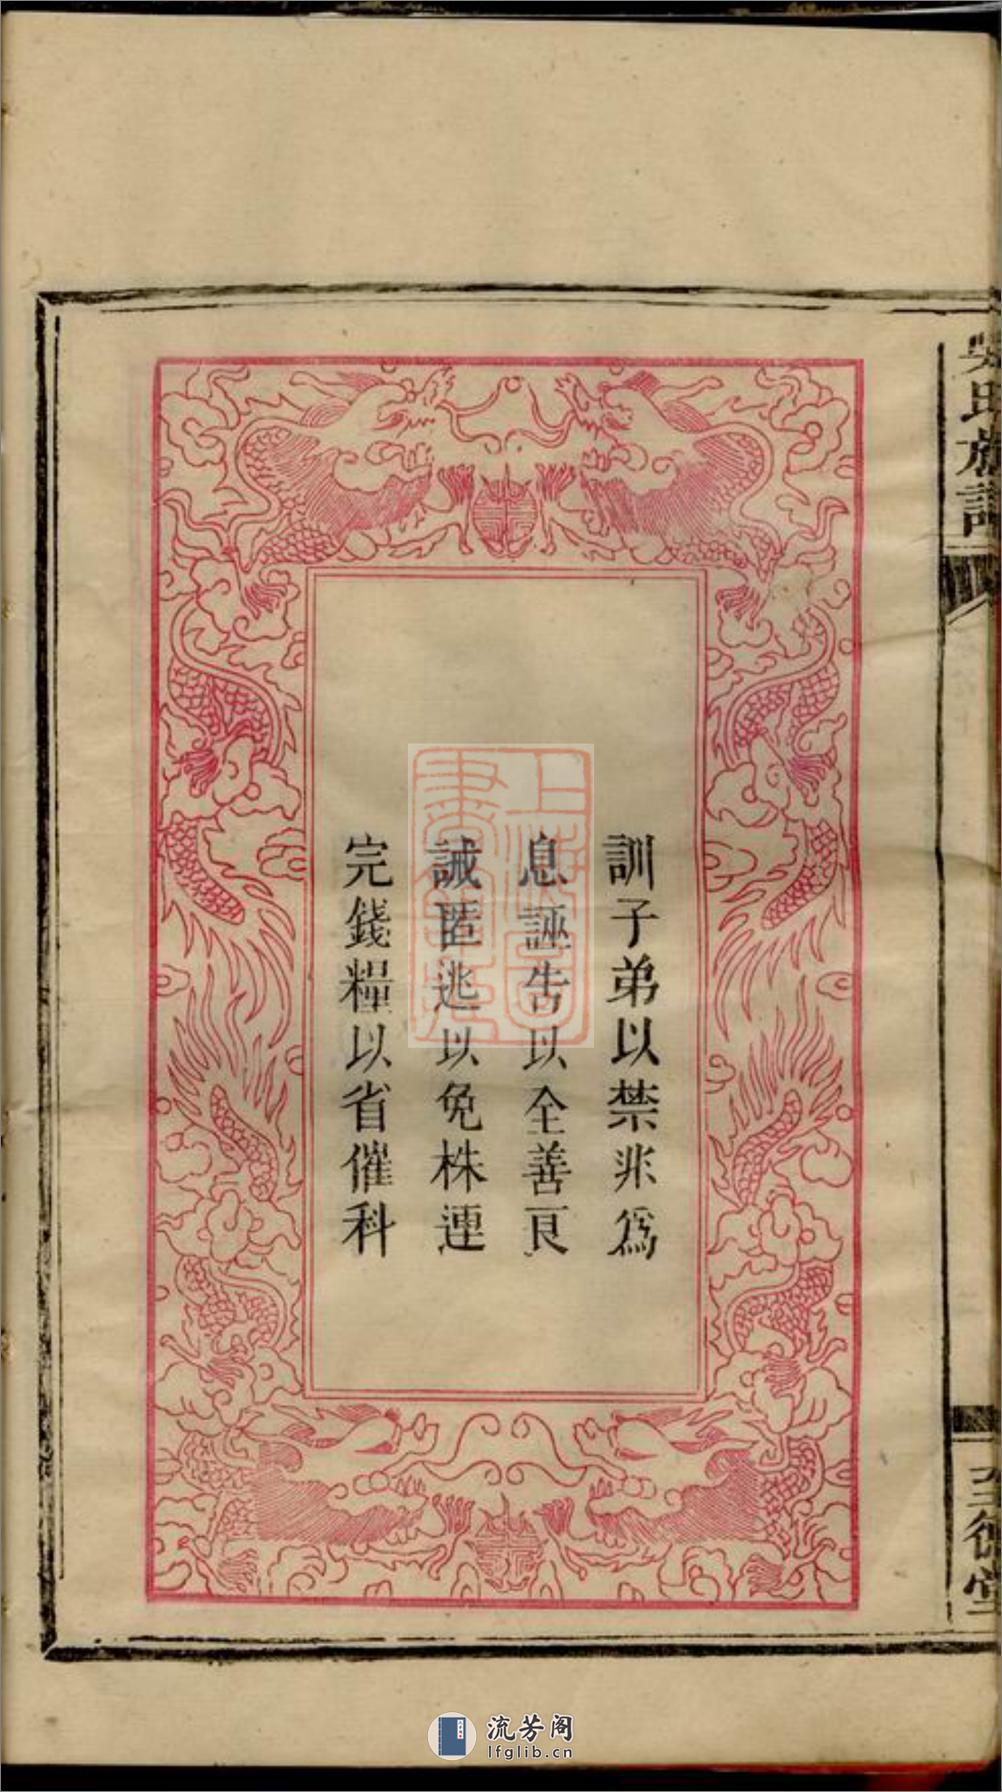 訓子弟以禁非爲
息誣告以全善良
誡匿逃以免株連
完錢糧以省催科
吳氏族譜
至德堂
上海圖書館藏
流芳阁
lfglib.cn